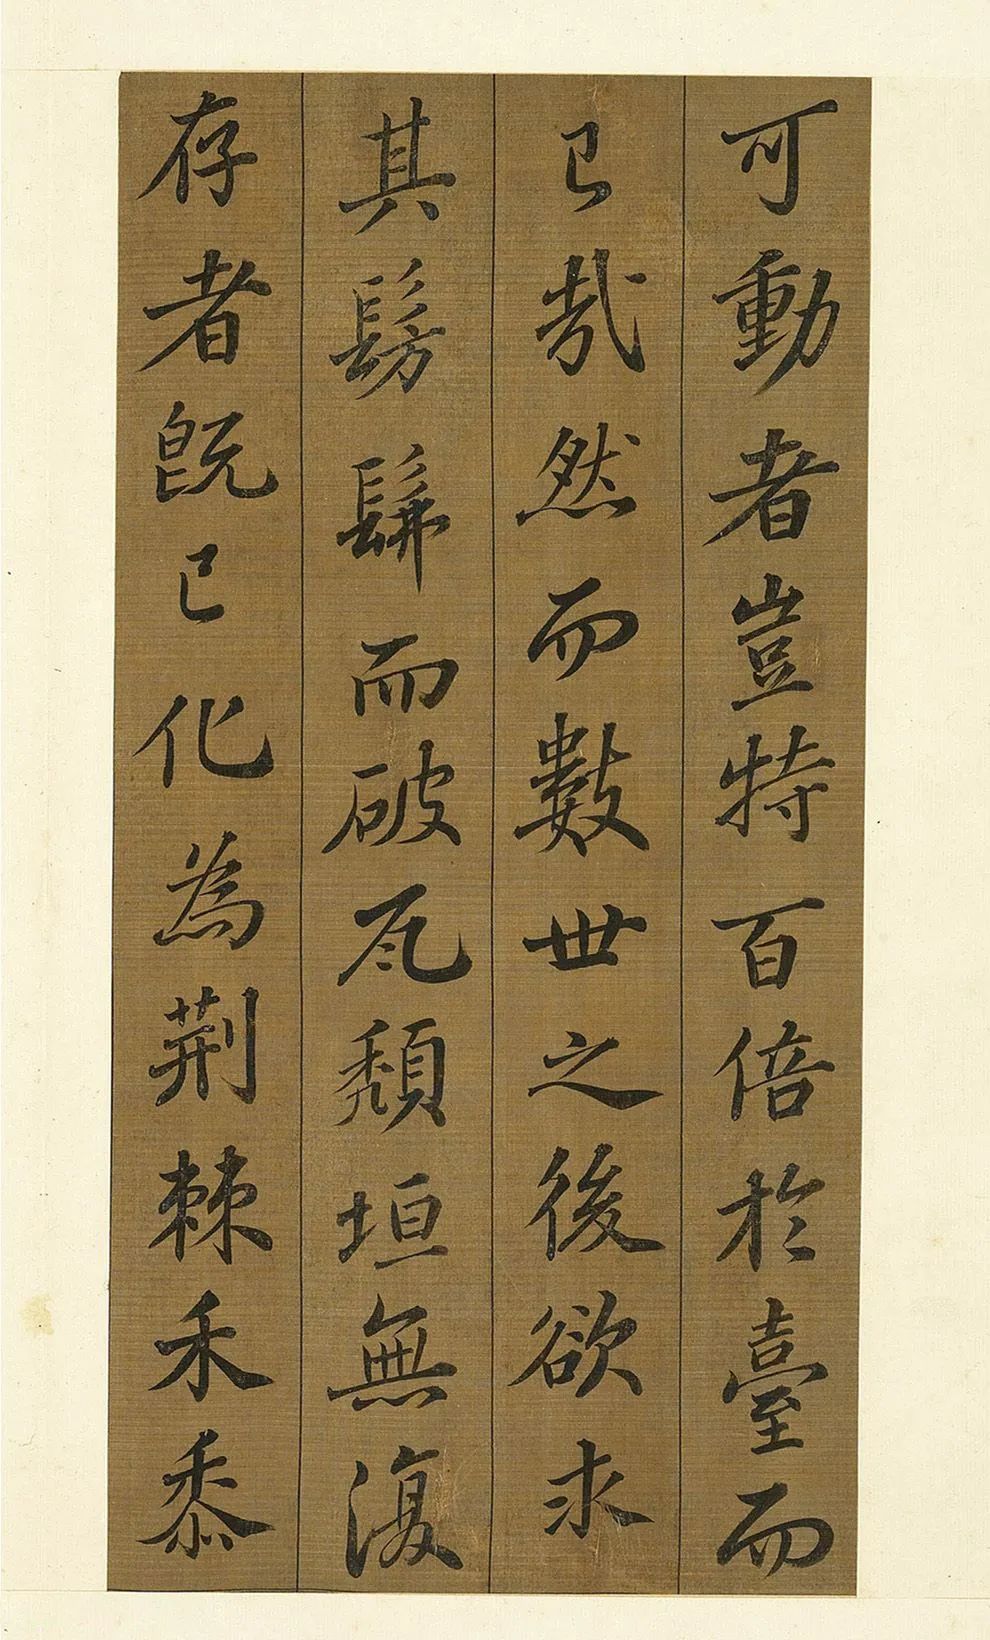 可動者豈特百倍於臺而
已哉然而數世之後欲求
其髣髴而破瓦頹垣無復
存者既已化為荊棘禾黍